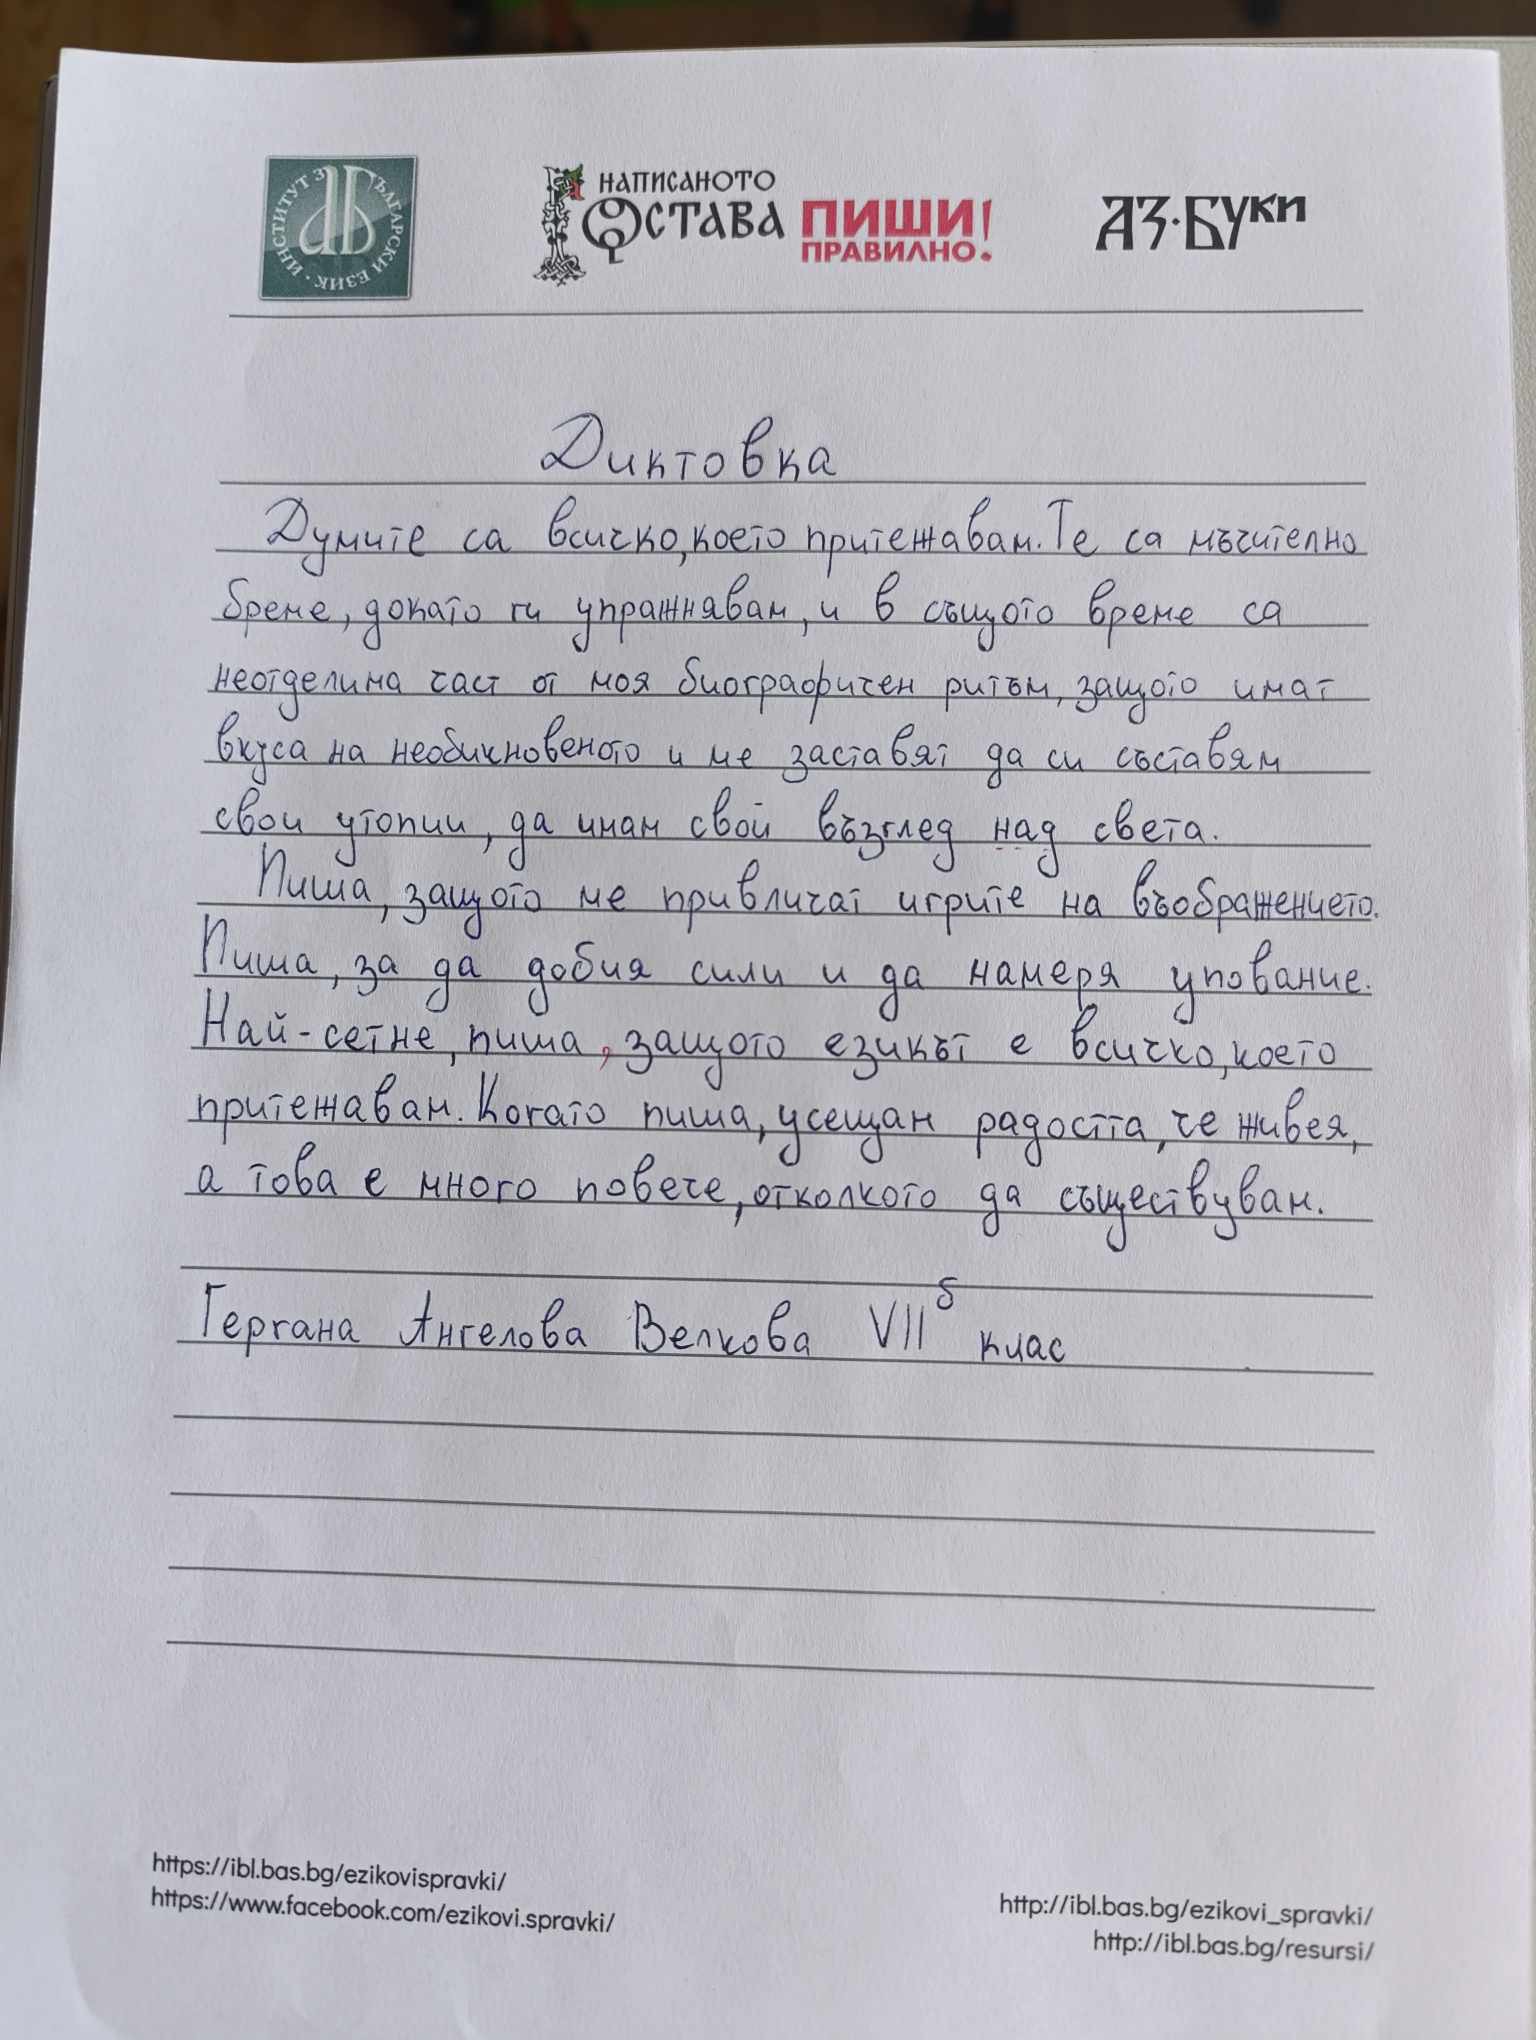 ИНСТИТУТ ЗА БЪЛГАРСКИ ЕЗИК
НАПИСАНОТО
ОСТАВА
ПИШИ
ПРАВИЛНО!
АЗ·БУКИ
Диктовка
Думите са всичко, което притежавам. Те са мъчително
бреме, докато ги упражнявам, и в същото време са
неотделима част от моя биографичен ритъм, защото имат
вкуса на необикновеното и ме заставят да си съставям
свои утопии, да имам свой възглед над света.
Пиша, защото ме привличат игрите на въображението.
Пиша, за да добия сили и да намеря упование.
Най-сетне, пиша, защото езикът е всичко, което
притежавам. Когато пиша, усещам радостта, че живея,
а това е много повече, отколкото да съществувам.
Гергана Ангелова Велкова VII б клас
https://ibl.bas.bg/ezikovispravki/
https://www.facebook.com/ezikovi.spravki/
http://ibl.bas.bg/ezikovi_spravki/
http://ibl.bas.bg/resursi/